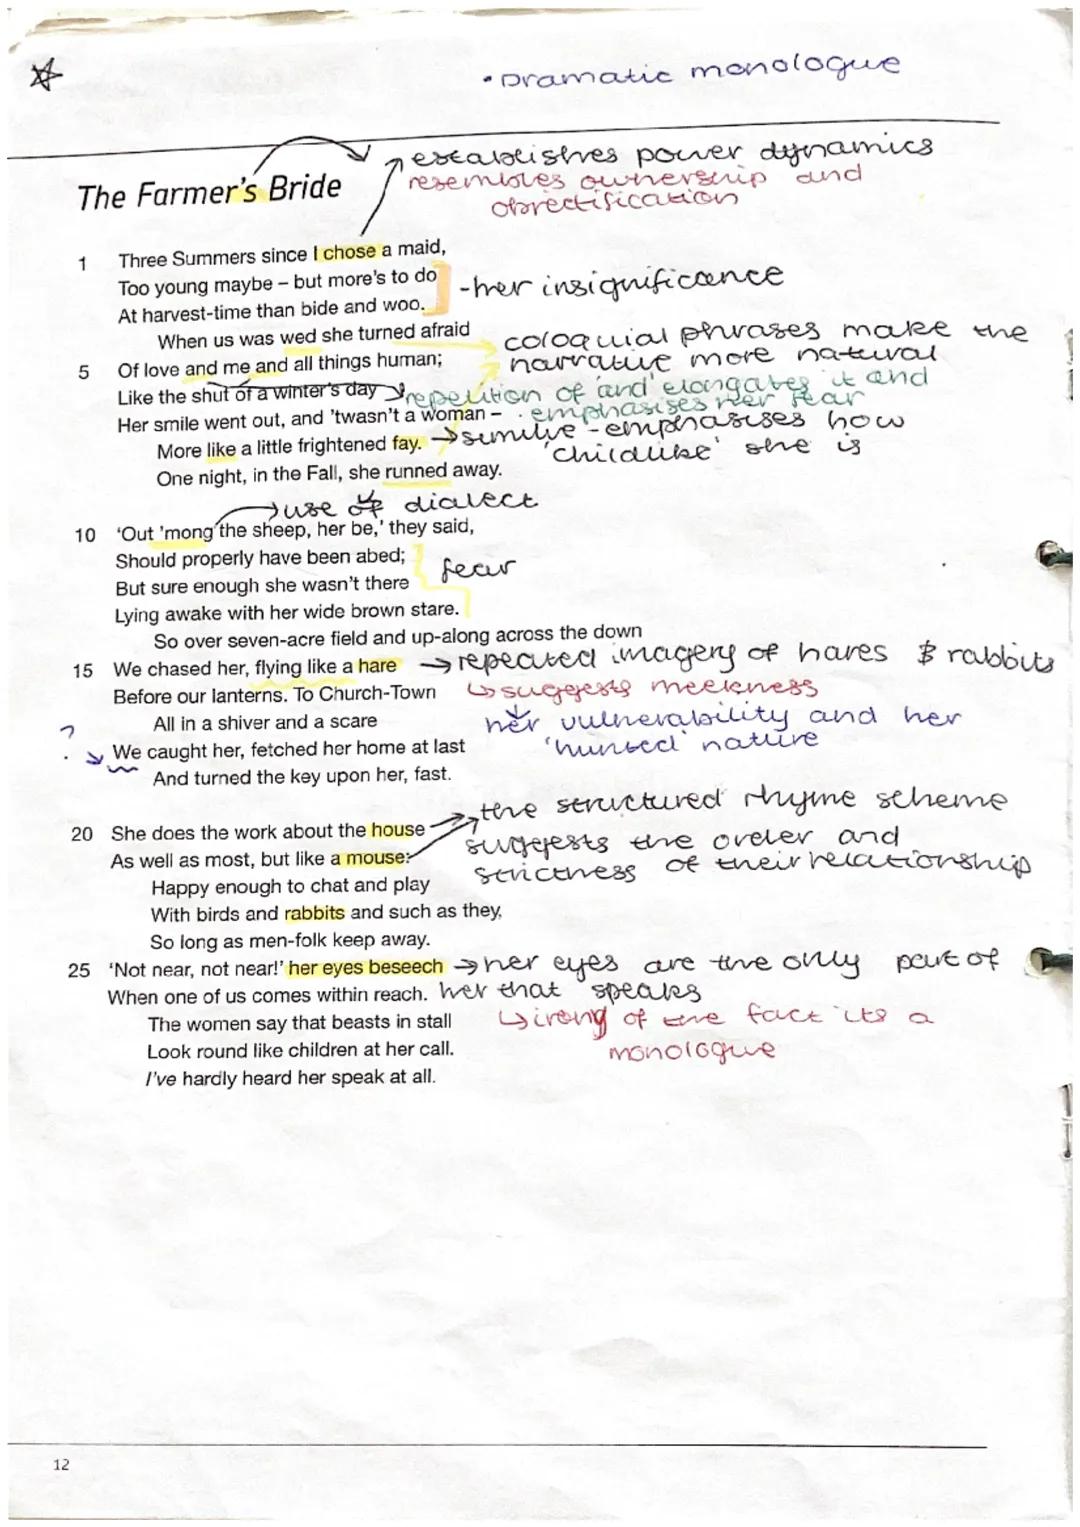 • Dramatic monologue
establishes power dynamics
resembles ownership and
objectification
The Farmer's Bride
1 Three Summers since I chose a maid,
Too young maybe – but more's to do
At harvest-time than bide and woo.
- her insignificance
When us was wed she turned afraid
5 Of love and me and all things human;
Like the shut of a winter's day
Her smile went out, and 'twasn't a woman –
More like a little frightened fay.
One night, in the Fall, she runned away.
coloquial phrases make the
narrative more natural
repetition of 'and' elongates it and
. emphasises her fear
→ simile - emphasises how
'childlike' she is
→ use of dialect
10 'Out 'mong the sheep, her be,' they said,
Should properly have been abed;
But sure enough she wasn't there
Lying awake with her wide brown stare.
fear
So over seven-acre field and up-along across the down
15 We chased her, flying like a hare
Before our lanterns. To Church-Town
All in a shiver and a scare
We caught her, fetched her home at last
And turned the key upon her, fast.
→ repeated imagery of hares & rabbits
↳ suggests meekness
her vulnerability and her
'hunted' nature
?
20 She does the work about the house
As well as most, but like a mouse:
Happy enough to chat and play
With birds and rabbits and such as they,
So long as men-folk keep away.
→ the structured rhyme scheme
suggests the order and
strictness of their relationship
25 'Not near, not near!' her eyes beseech
When one of us comes within reach.
The women say that beasts in stall
Look round like children at her call.
I've hardly heard her speak at all.
→ her eyes are the only part of
her that speaks
↳ irony of the fact its a
monologue
12